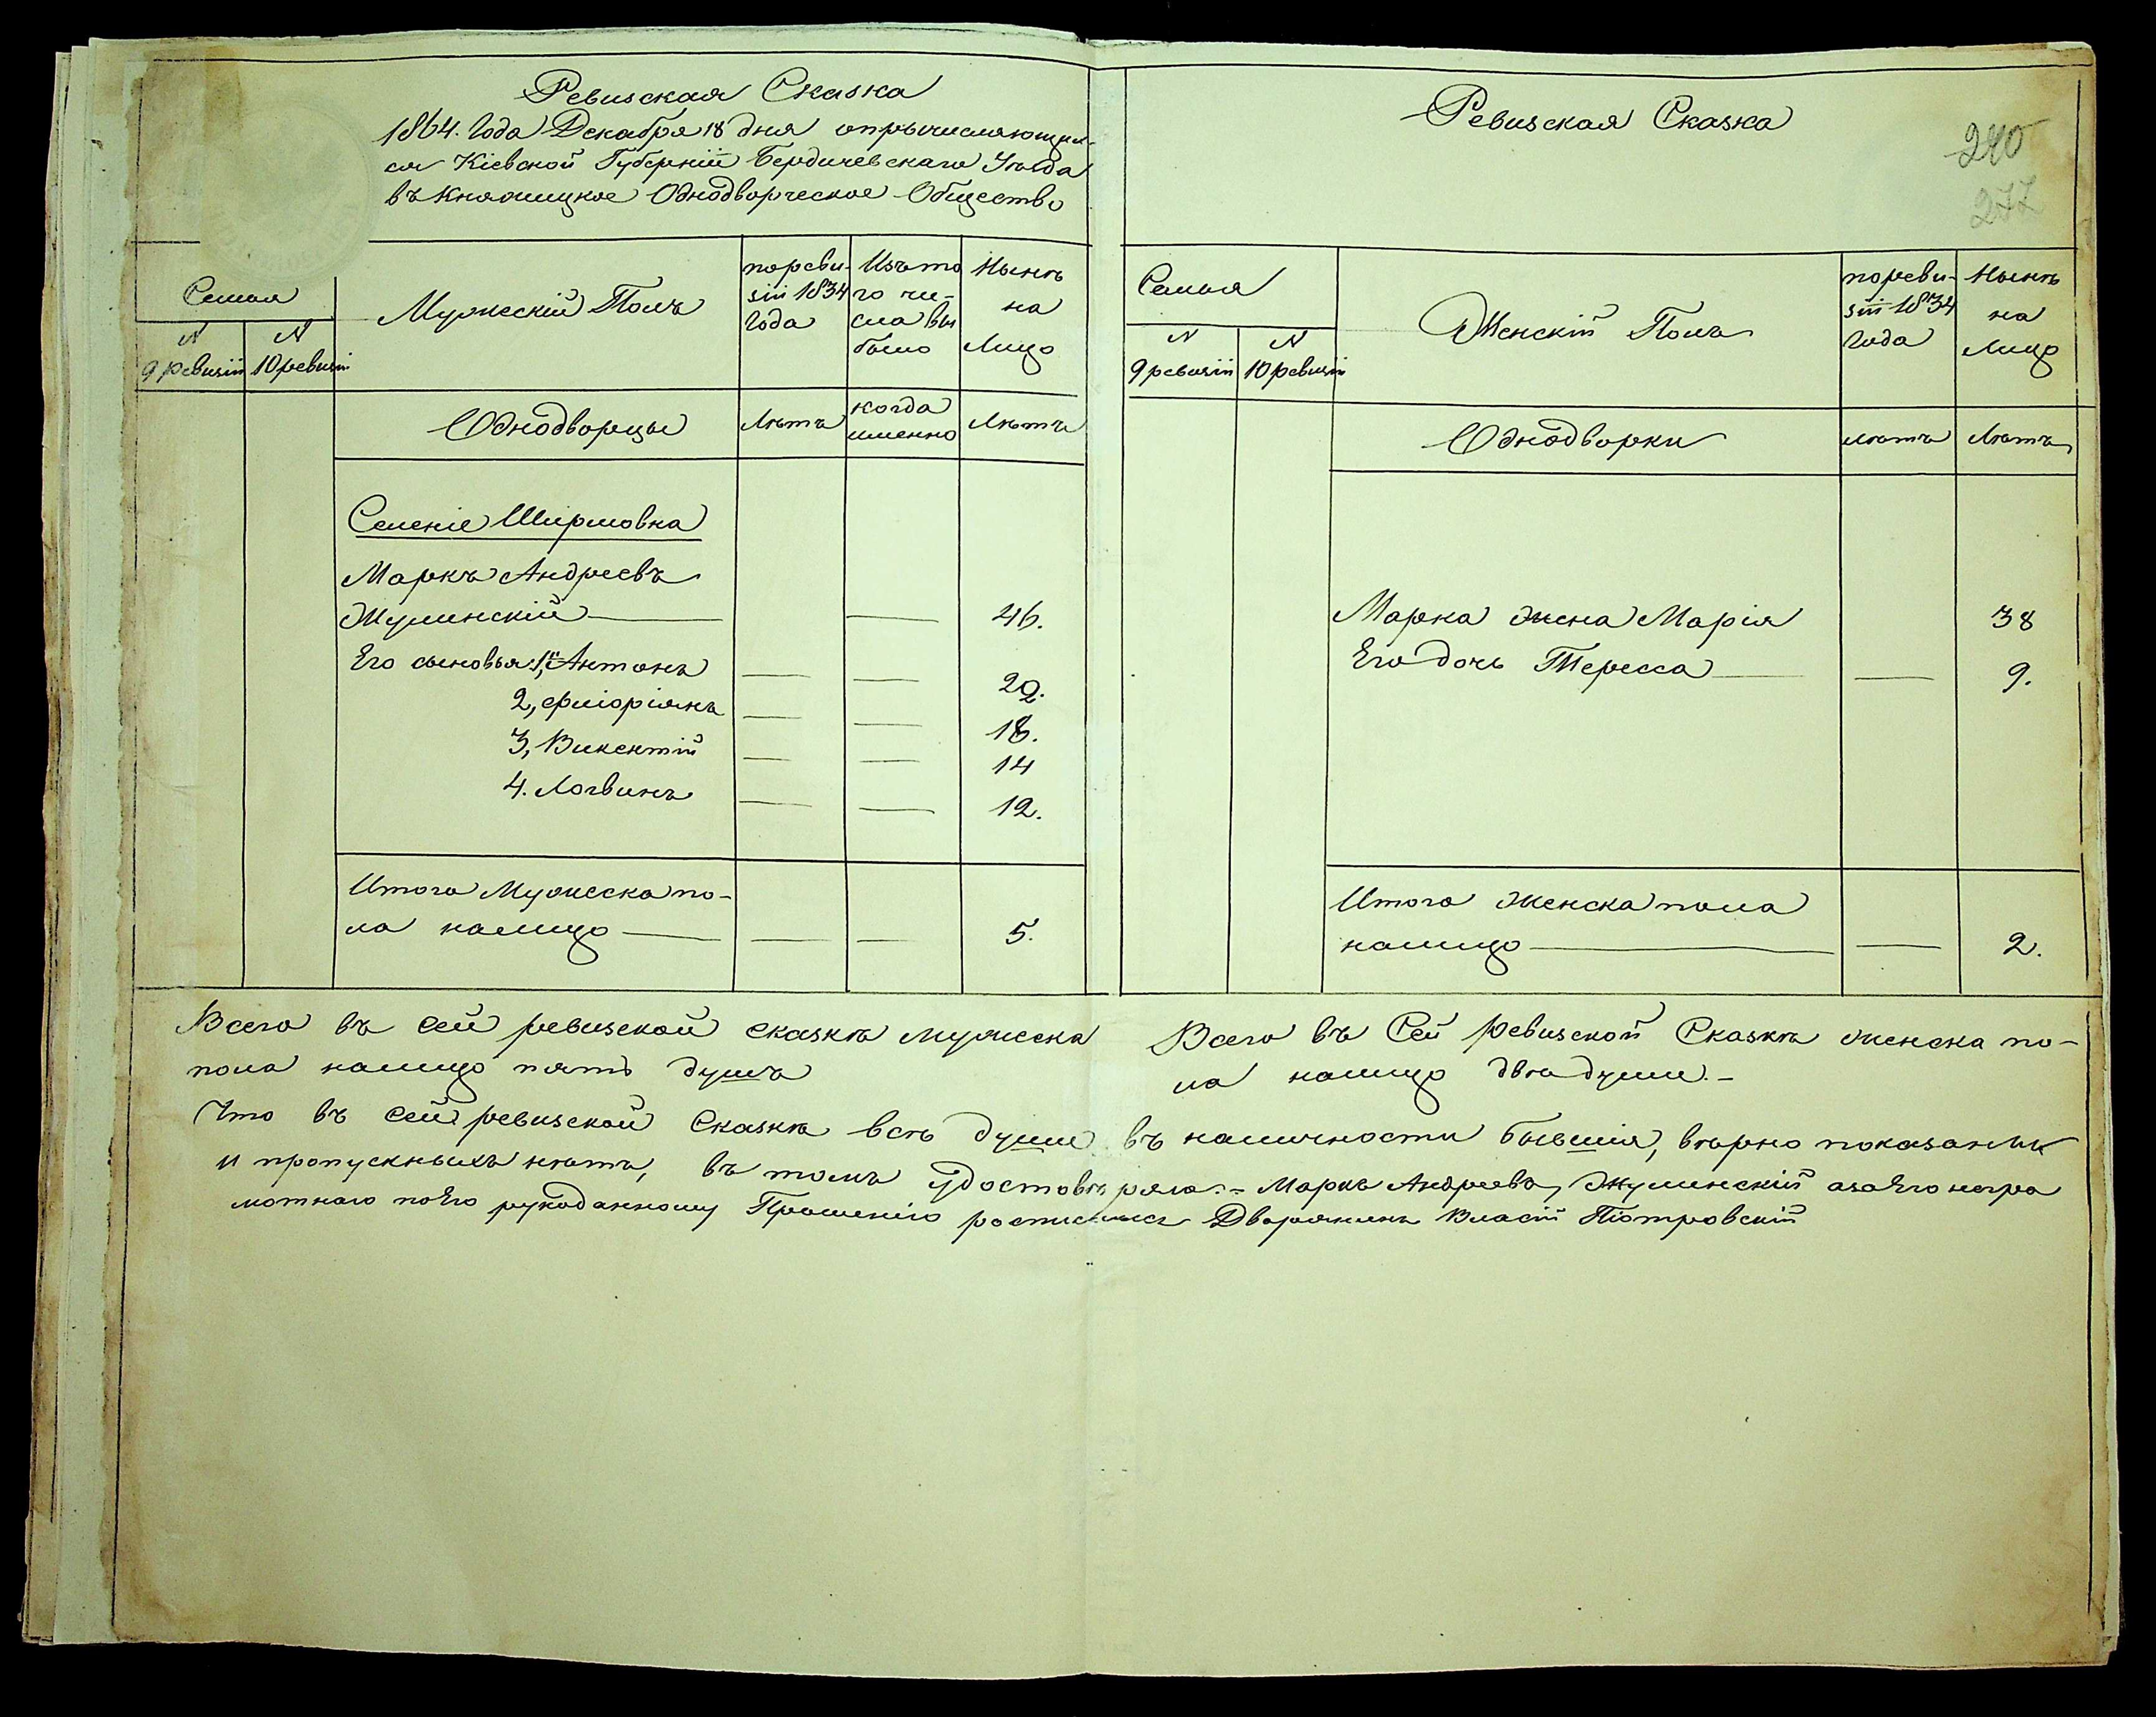 Ревизская Сказка
1864. Года Декабря 18 дня опрычисляющих-
ся Кіевской Губерніи Бердичевскаго Уѣзда
въ Княжицкое Однодворческое Общество
Семья
N
9 ревизіи
N
10 ревизіи
Мужескій Полъ
по реви-
зіи 1834
Года
Изъ то
го чи-
сла вы
было
Нынѣ
на
Лицо
Однодворцы
Лѣта
когда
именно
Лѣта
Селеніе Ширмовка
Маркъ Андреевъ
Жулинскій — — 46.
Его сыновья: 1, Антонъ — — 22.
2, Флоріянъ — — 18.
3, Викентій — — 14
4. Логвинъ — — 12.
Итого Мужеска по-
ла налицо — — — 5.
Всего въ сей ревизской сказкѣ мужеска
пола налицо пять душъ
Ревизская Сказка
240
277
Семья
N
9 ревизіи
N
10 ревизіи
Женскій Полъ
по реви-
зіи 1834
Года
Нынѣ
на
Лицо
Однодворки
лѣта
Лѣта
Марка жена Марія 38
Его дочь Тересса — — 9.
Итого женска пола
налицо — — 2.
Всего въ Сей ревизской Сказкѣ женска по-
ла налицо двѣ души.-
Что въ сей ревизской Сказкѣ всѣ души въ наличности бывшія, вѣрно показанны
и пропускныхъ нѣтъ, въ томъ удостовѣряю.- Маркъ Андреевъ Жулинскій а за Его негра
мотнаго по Его рукоданному Прошенію росписался Дворянинъ Власій Піотровскій